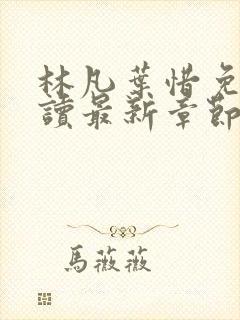 林凡葉惜免
讀最新章節
馬薇薇